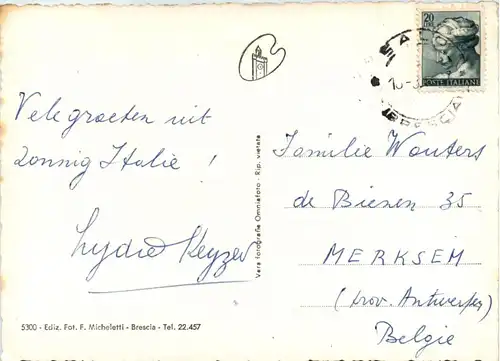 Vele groeten uit
zonnig Italie !
Lydie Keyzer
5300 - Ediz. Fot. F. Micheletti - Brescia - Tel. 22.457
Vera fotografia Omniafoto - Rip. vietata
20
POSTE ITALIANE
BRESCIA
Familie Wouters
de Biezen 35
MERKSEM
(prov. Antwerpen)
Belgie